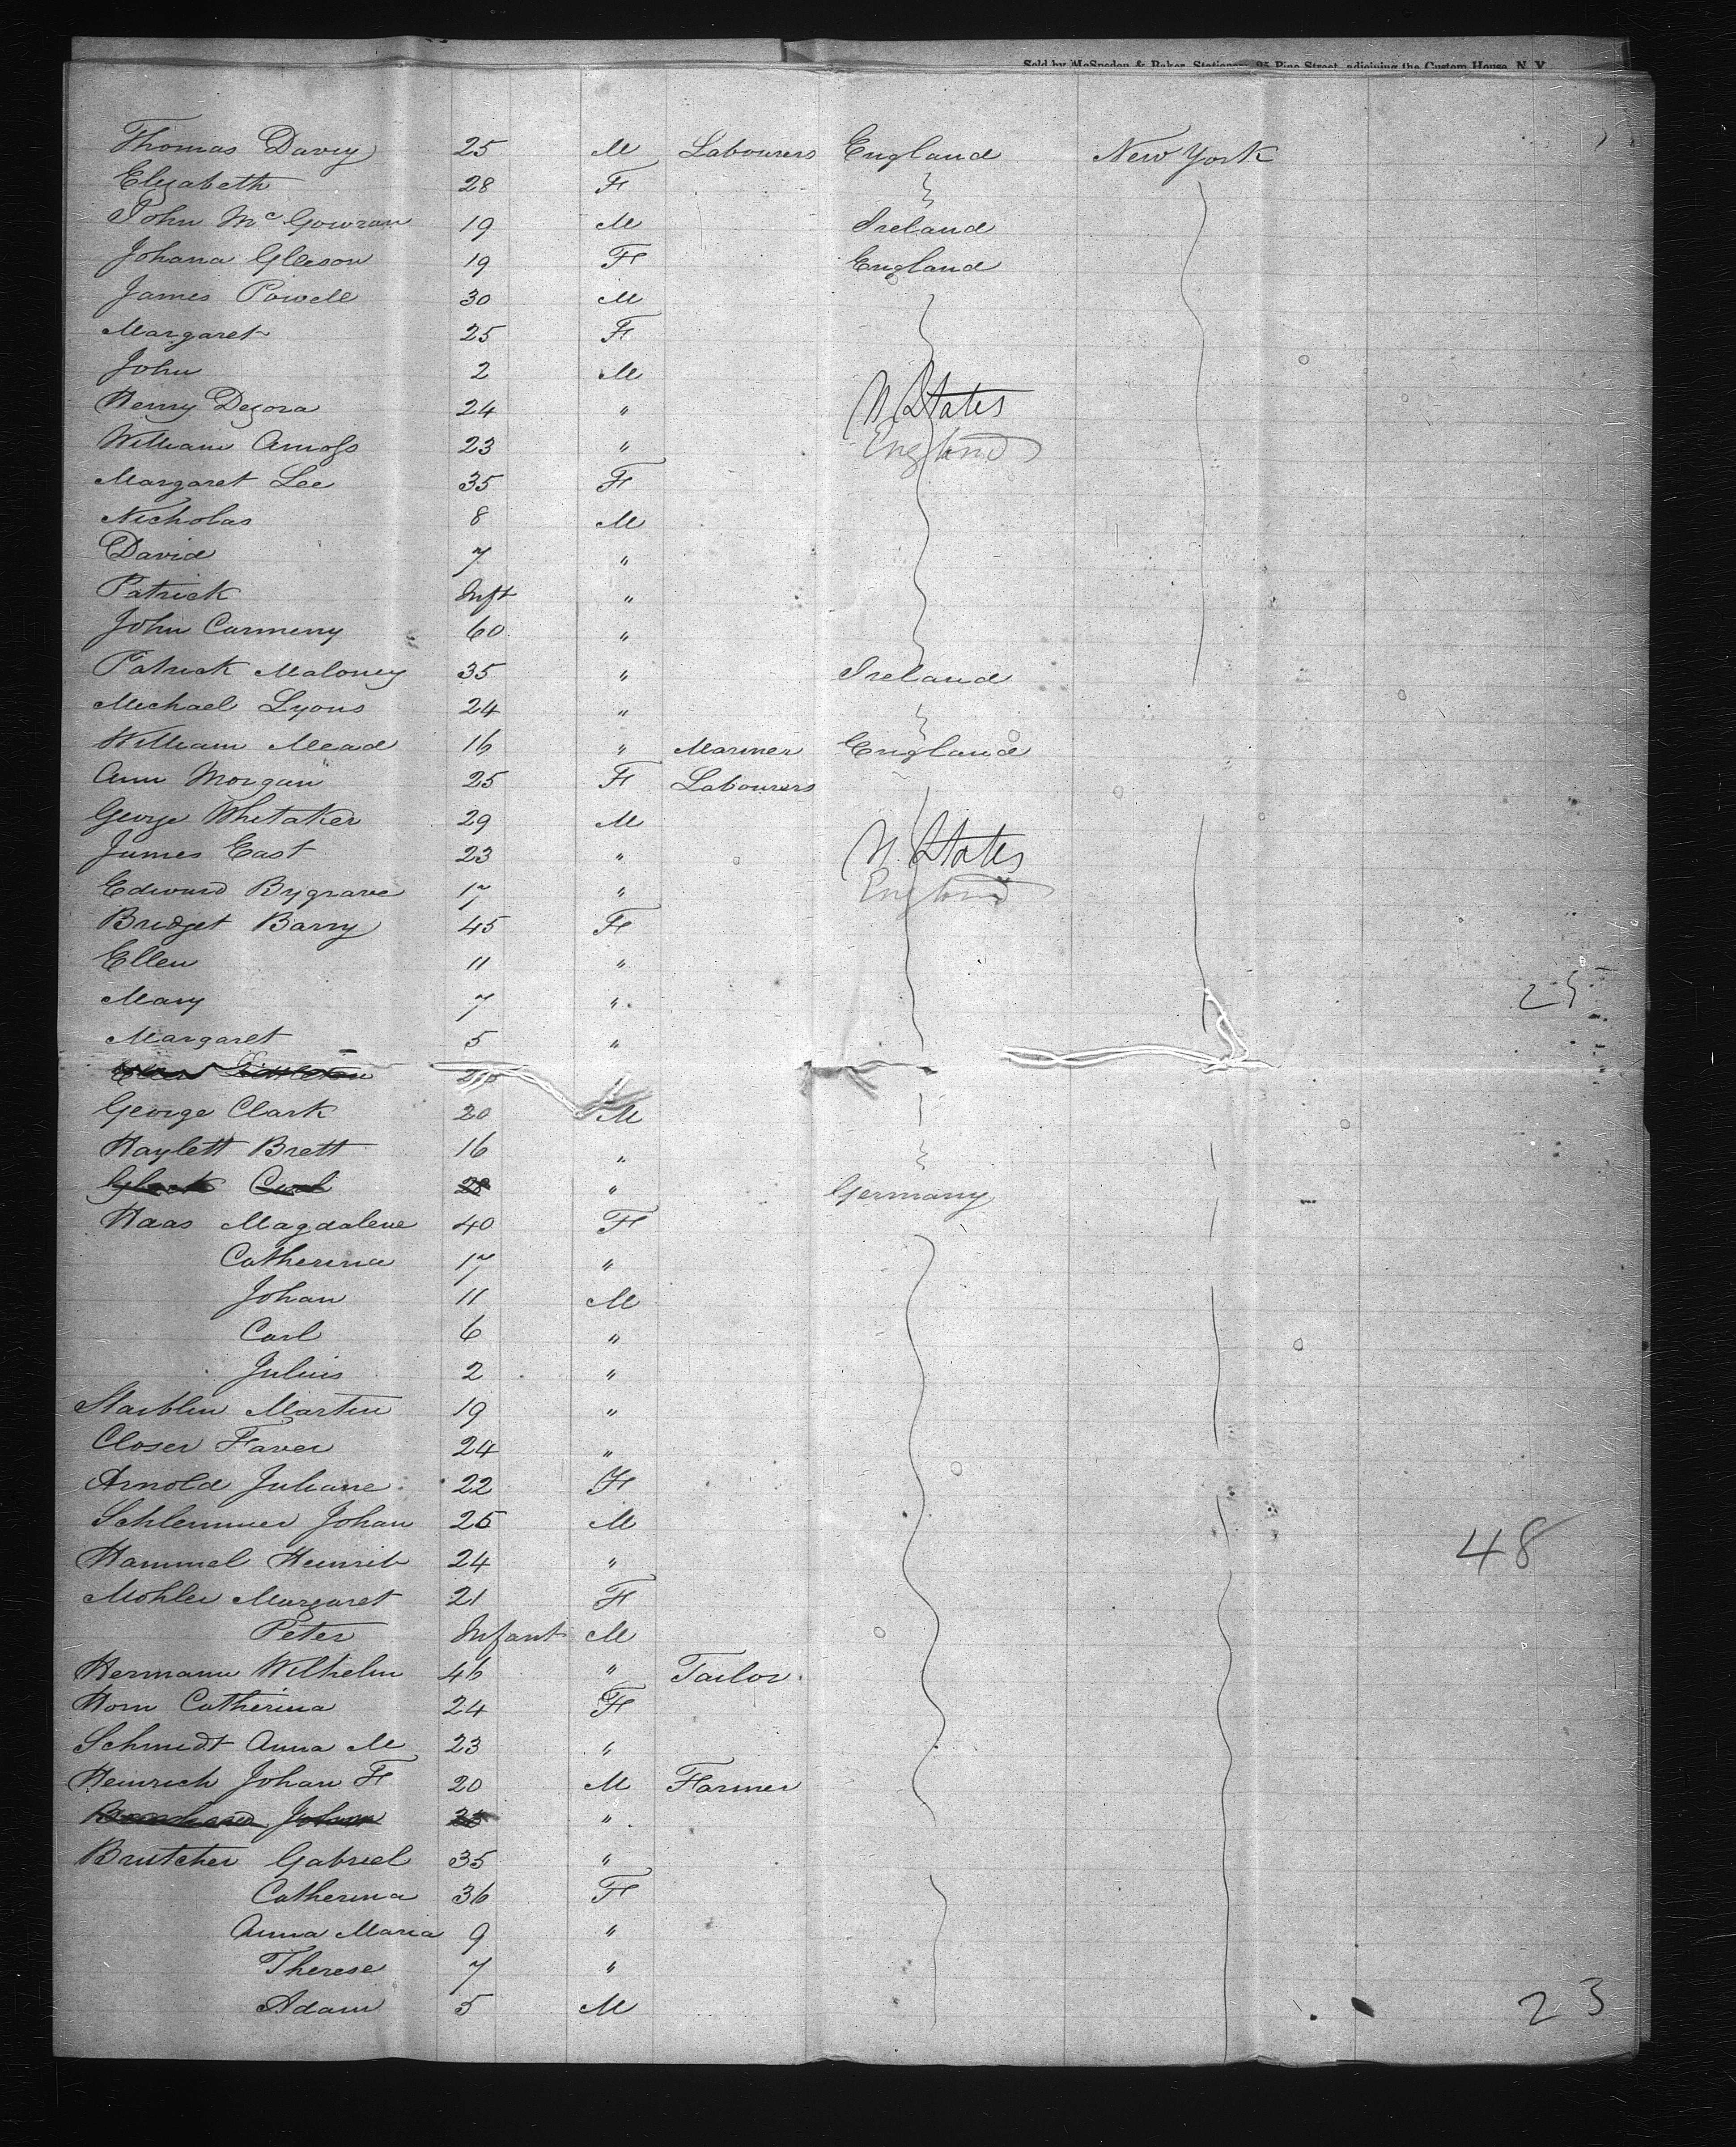 Sold by McSpedon & Baker, Stationers, 25 Pine Street, adjoining the Custom House, N. Y.
Thomas Davey 25 M Labourers England New York
Elizabeth 28 F
John McGowran 19 M Ireland
Johana Gleeson 19 F England
James Powell 30 M
Margaret 25 F
John 2 M
Henry Degora 24 " U States
William Amoss 23 " England
Margaret Lee 35 F
Nicholas 8 M
David 7 "
Patrick Inft "
John Carmeny 60 "
Patrick Maloney 35 " Ireland
Michael Lyons 24 "
William Mead 16 " Mariner England
Ann Morgan 25 F Labourers
George Whitaker 29 M
James East 23 " U. States
Edward Bygrave 17 " England
Bridget Barry 45 F
Ellen 11 "
Mary 7 "
25
Margaret 5 "
George Clark 20 M
Haylett Brett 16 "
28 " Germany
Haas Magdalene 40 F
Catherina 17 "
Johan 11 M
Carl 6 "
Julius 2 "
Staiblin Martin 19 "
Closer Faver 24 "
Arnold Juliane 22 F
Schlemmer Johan 25 M
48
Hammel Heinrih 24 "
Mohler Margaret 21 F
Peter Infant M
Hermann Wilhelm 46 " Tailor
Horn Catherina 24 F
Schmidt Anna M 23 "
Heinrich Johan F 20 M Farmer
"
Brutcher Gabriel 35 "
Catherina 36 F
Anna Maria 9 "
Therese 7 "
Adam 5 M
23